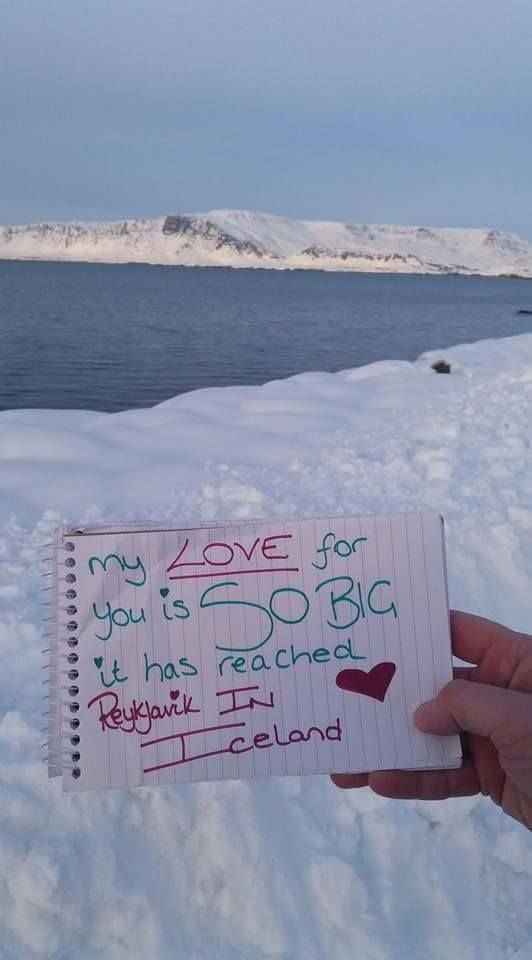 my LOVE for
you is SO BIG
it has reached
Reykjavik IN
Iceland